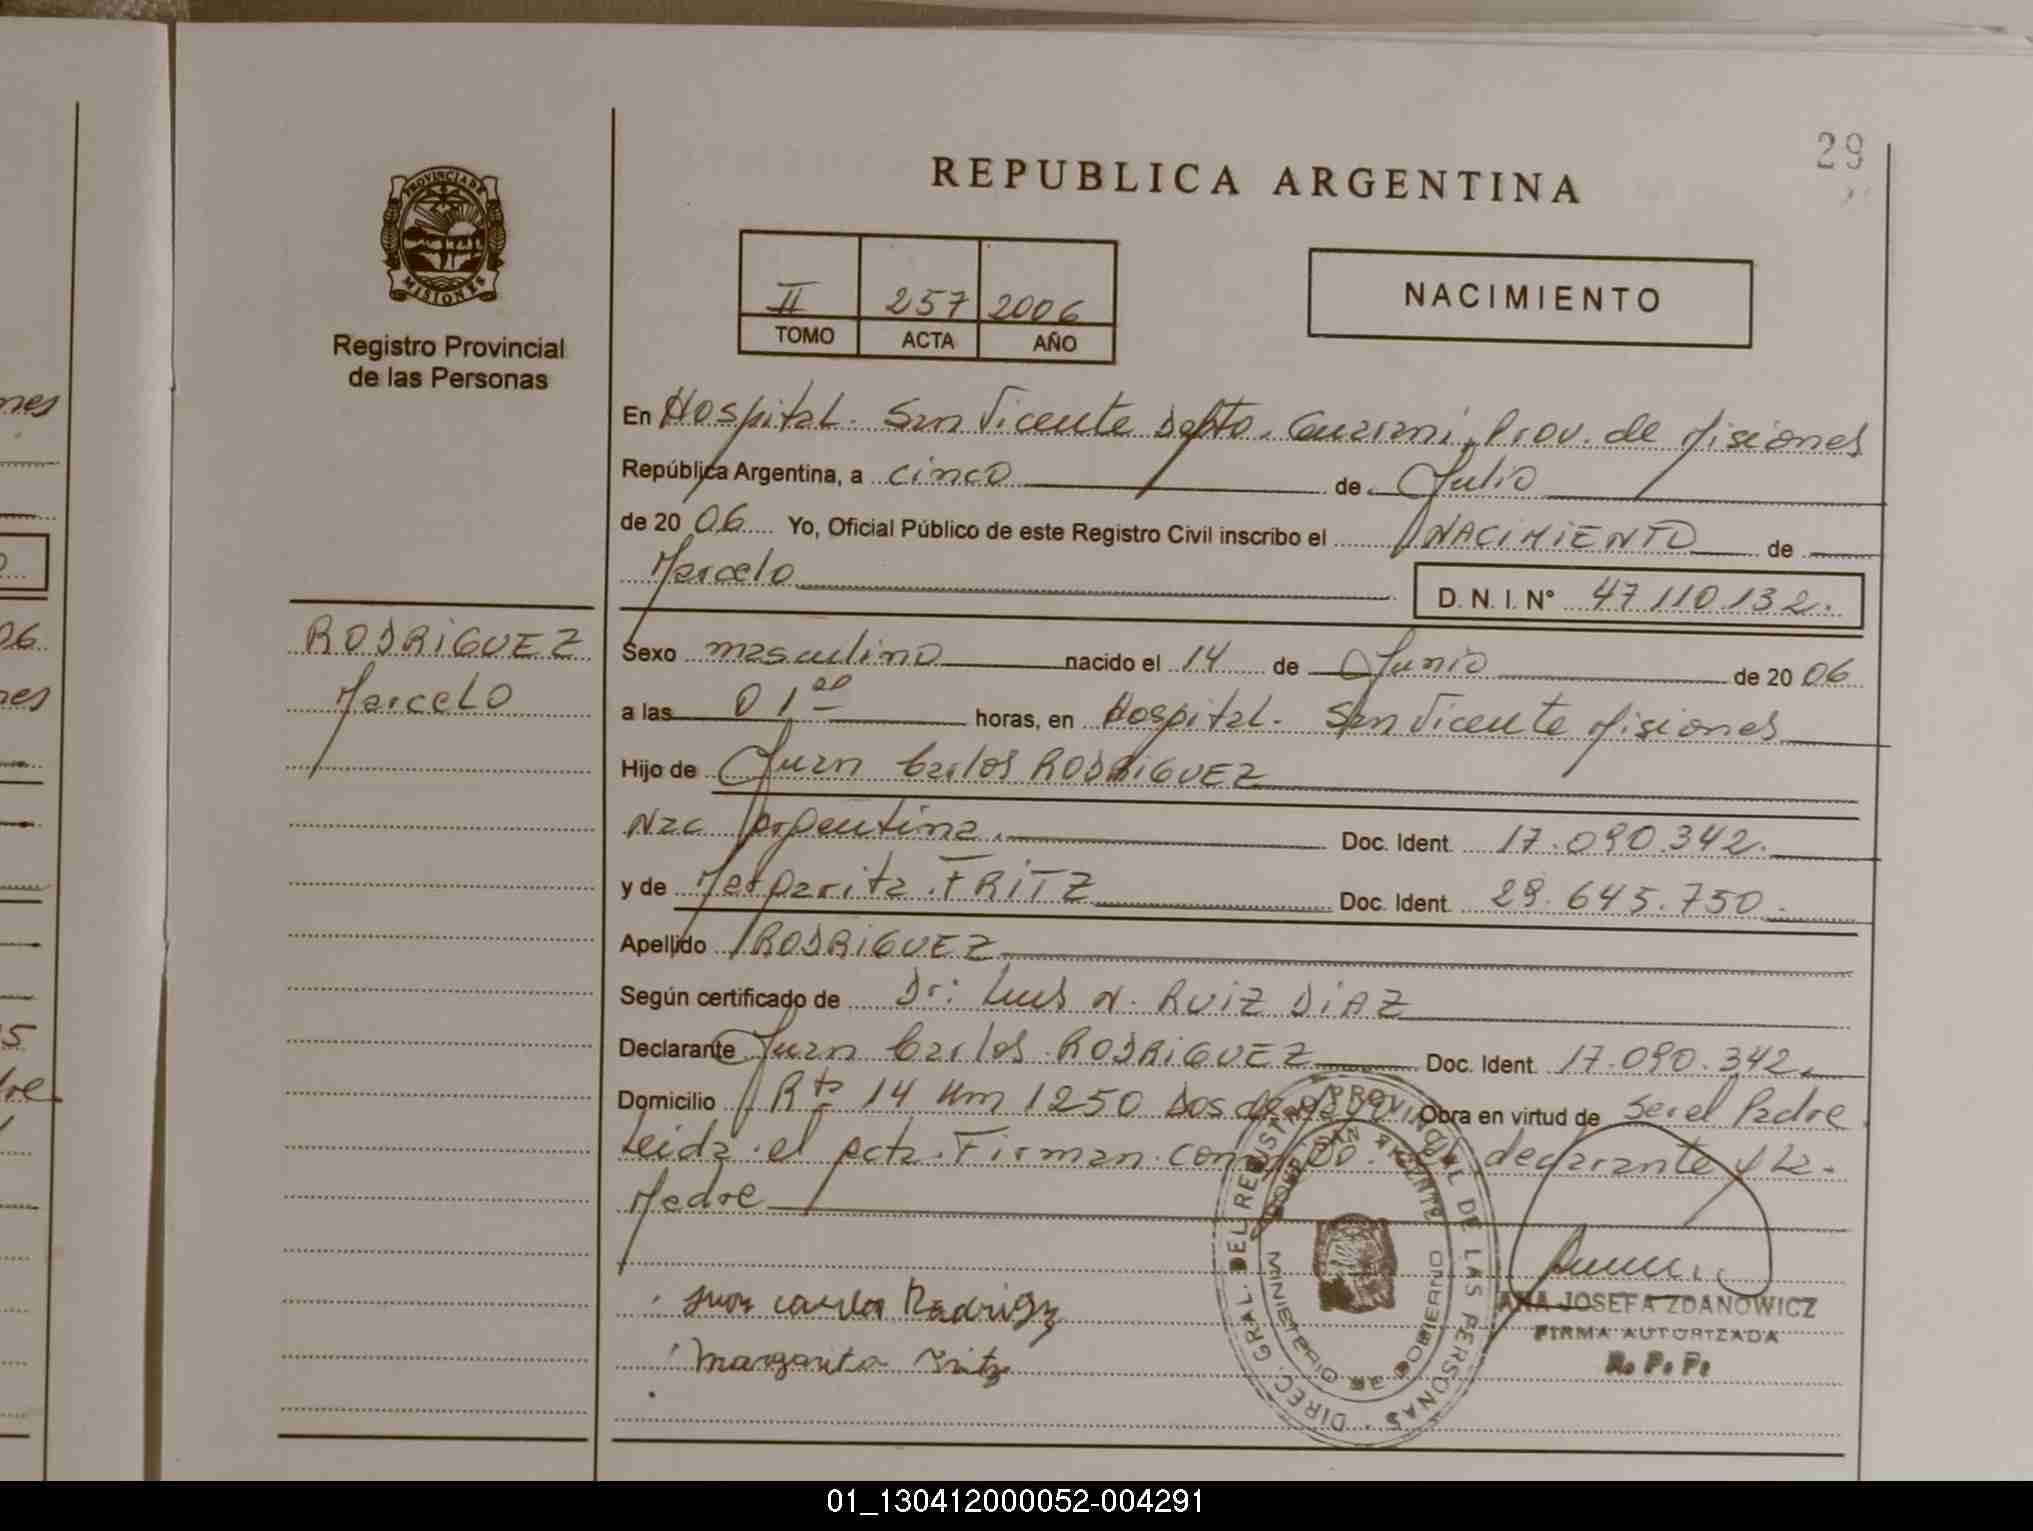 29
REPUBLICA ARGENTINA
PROVINCIA DE
MISIONES
Registro Provincial
de las Personas
II 257 2006
TOMO ACTA AÑO
NACIMIENTO
En Hospital. San Vicente Depto. Guarani, Prov. de Misiones
República Argentina, a cinco de Julio
de 20 06 Yo, Oficial Público de este Registro Civil inscribo el NACIMIENTO de
Marcelo D. N. I. N° 47.110.132.
RODRIGUEZ
Marcelo
Sexo masculino nacido el 14 de Junio de 20 06
a las 01 00 horas, en Hospital. San Vicente Misiones
Hijo de Juan Carlos RODRIGUEZ
Nac Argentina. Doc. Ident. 17.090.342.
y de Margarita FRITZ Doc. Ident. 29.645.750.
Apellido RODRIGUEZ
Según certificado de Dr: Luis N. RUIZ DIAZ
Declarante Juan Carlos RODRIGUEZ Doc. Ident. 17.090.342.
Domicilio Rta 14 Km 1250 Dos de Obra en virtud de Ser el Padre
Leida el acta. Firman declarante y La.
Madre
Juan Carlos
Margarita Fritz
DIREC. GRAL. DEL REGIST. PROVINCIAL DE LAS PERSONAS
SAN VICENTE
MINISTERIO DE GOBIERNO
ANA JOSEFA ZDANOWICZ
FIRMA AUTORIZADA
R. P. P.
01_130412000052-004291